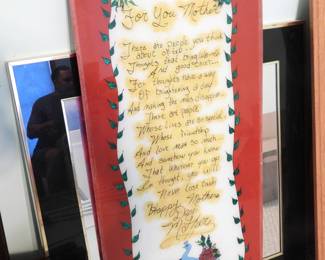 For You Mother
There are people you think
about often
Thoughts that bring warmth
And good cheer
For thoughts have a way
Of brightening a day
And making the miles disappear
There are people
Whose lives are so special
Whose friendship
And love mean so much
And somehow you know
That wherever you go
In thought, you will
Never lose touch
Happy Mothers
Day
Mother